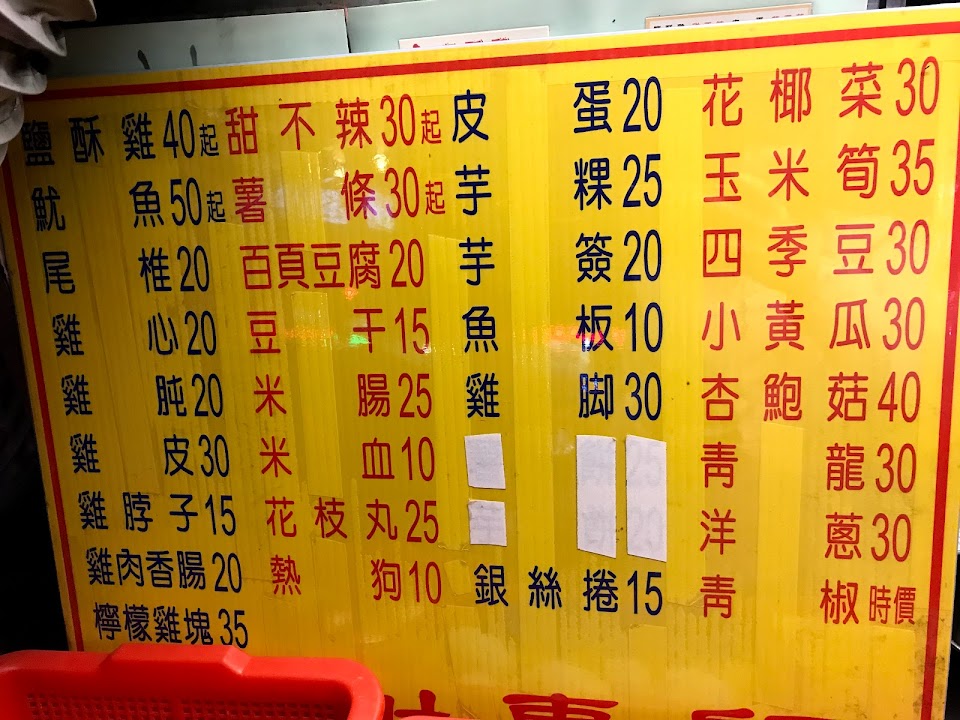 鹽酥雞40起
魷魚50起
尾椎20
雞心20
雞肫20
雞皮30
雞脖子15
雞肉香腸20
檸檬雞塊35
甜不辣30起
薯條30起
百頁豆腐20
豆干15
米腸25
米血10
花枝丸25
熱狗10
皮蛋20
芋粿25
芋簽20
魚板10
雞脚30
銀絲捲15
花椰菜30
玉米筍35
四季豆30
小黃瓜30
杏鮑菇40
青龍30
洋蔥30
青椒時價